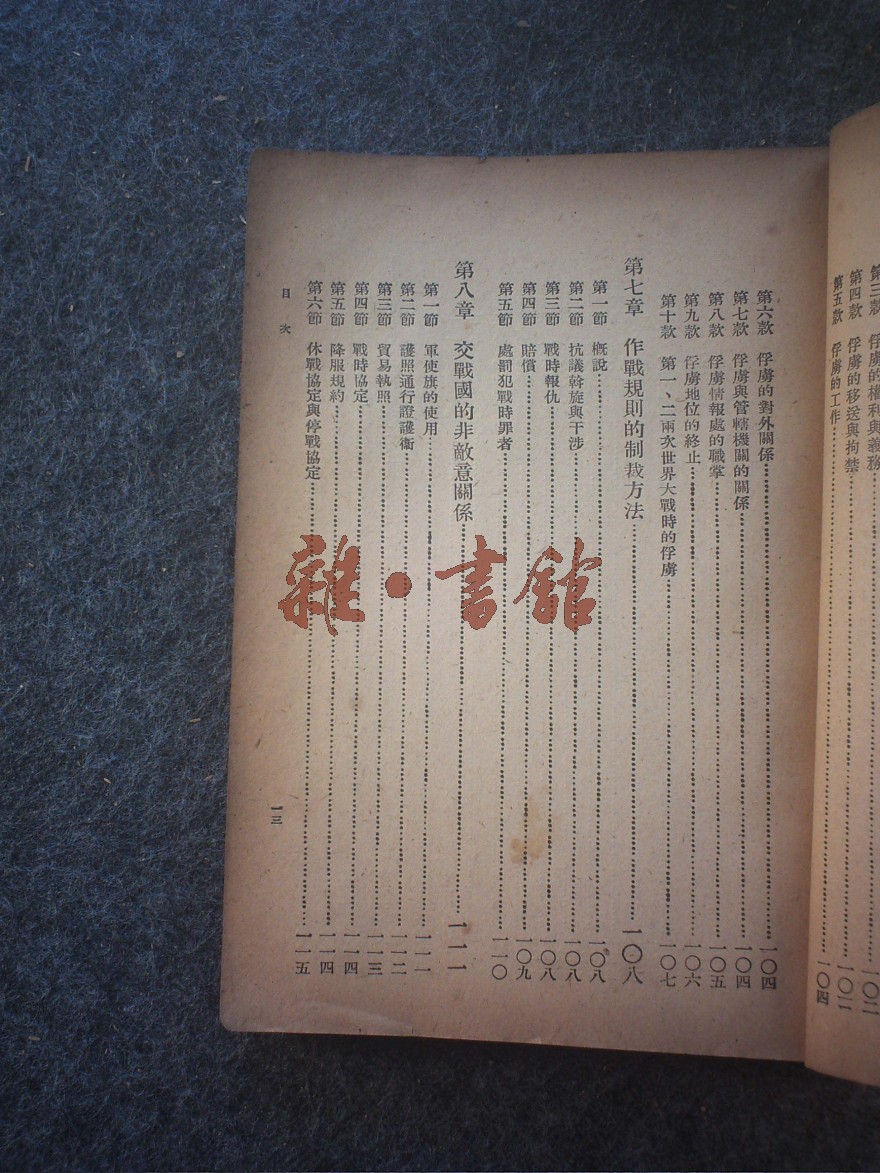 第三款 俘虜的權利與義務……一〇二
第四款 俘虜的移送與拘禁……一〇二
第五款 俘虜的工作……一〇四
第六款 俘虜的對外關係……一〇四
第七款 俘虜與管轄機關的關係……一〇四
第八款 俘虜情報處的職掌……一〇五
第九款 俘虜地位的終止……一〇六
第十款 第一、二兩次世界大戰時的俘虜……一〇七
第七章 作戰規則的制裁方法……一〇八
第一節 概說……一〇八
第二節 抗議斡旋與干涉……一〇八
第三節 戰時報仇……一〇八
第四節 賠償……一〇九
第五節 處罰犯戰時罪者……一一〇
第八章 交戰國的非敵意關係……一一一
第一節 軍使旗的使用……一一一
第二節 護照通行證護衞……一一二
第三節 貿易執照……一一三
第四節 戰時協定……一一四
第五節 降服規約……一一四
第六節 休戰協定與停戰協定……一一五
目次
一三
雜·書館